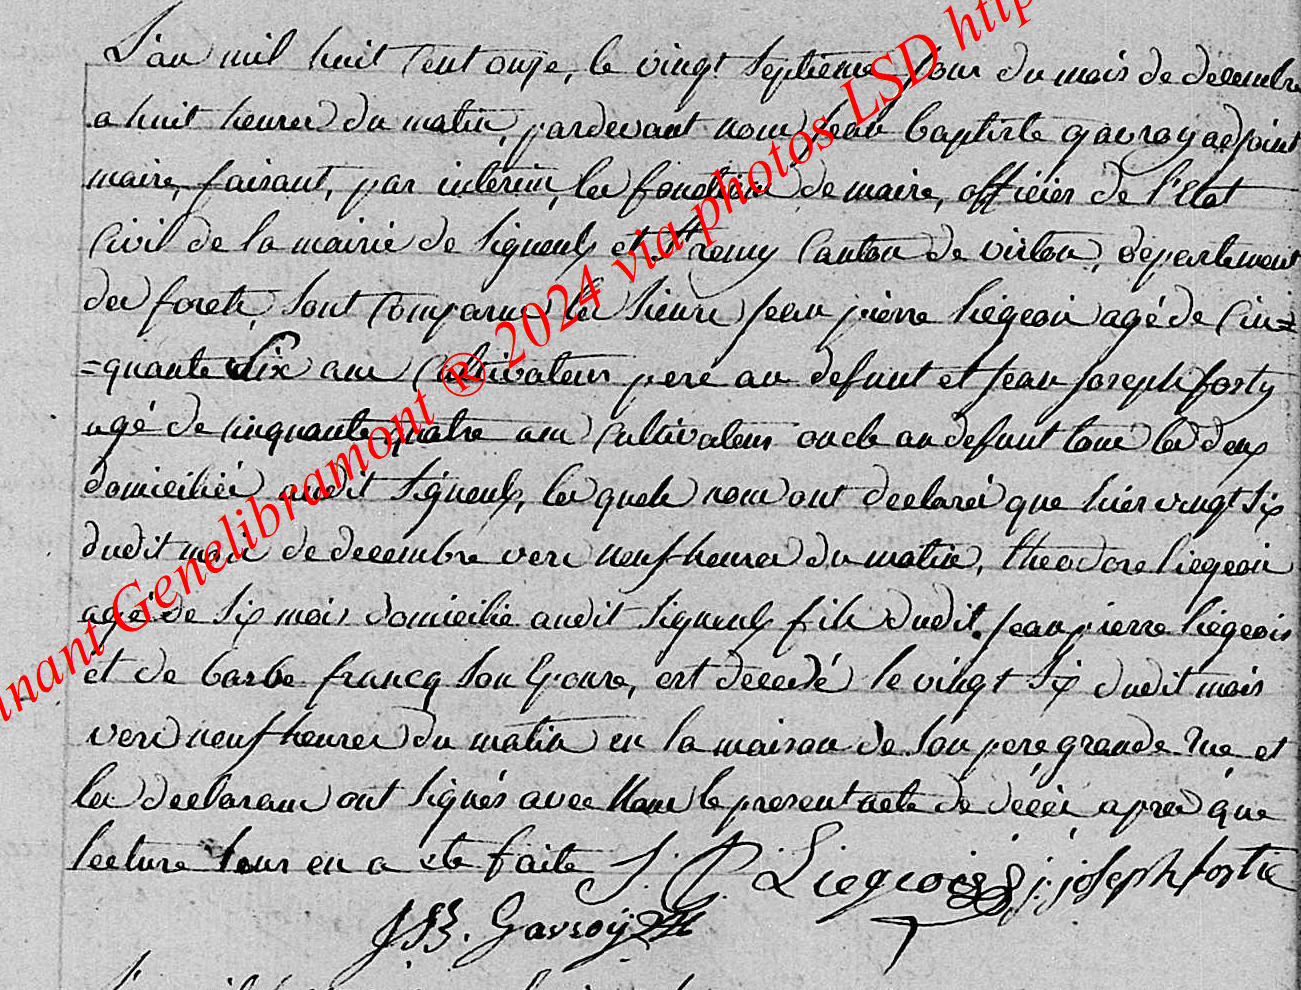 L'an mil huit Cent onze, le vingt septieme jour du mois de decembre
a huit heures du matin, pardevant nous jean baptiste gavroy adjoint
maire, faisant, par interim, les fonctions de maire, officier de l'Etat
Civil de la mairie de Signeulx et St remy Canton de virton, département
des forets, sont Comparus les sieurs jean pierre liégeois agé de Cin=
=quante six ans Cultivateur pere au defunt et jean joseph forty
agé de cinquante quatre ans Cultivateur oncle au defunt tous les deux
domiciliés audit Signeulx, les quels nous ont declarés que hier vingt six
dudit mois de decembre vers neuf heures du matin, theodore liegeois
agé de six mois domicilié audit Signeulx fils dudit jean pierre liégeois
et de barbe francq son Epouse, est decedé le vingt six dudit mois
vers neuf heures du matin en la maison de son pere grande rue et
les declarans ont signés avec Nous le present acte de décès apres que
lecture leur en a ete faite J. P. Liegeois j. joseph fortie
JB. Gavroÿ
anant Genelibramont ® 2024 via photos LSD http